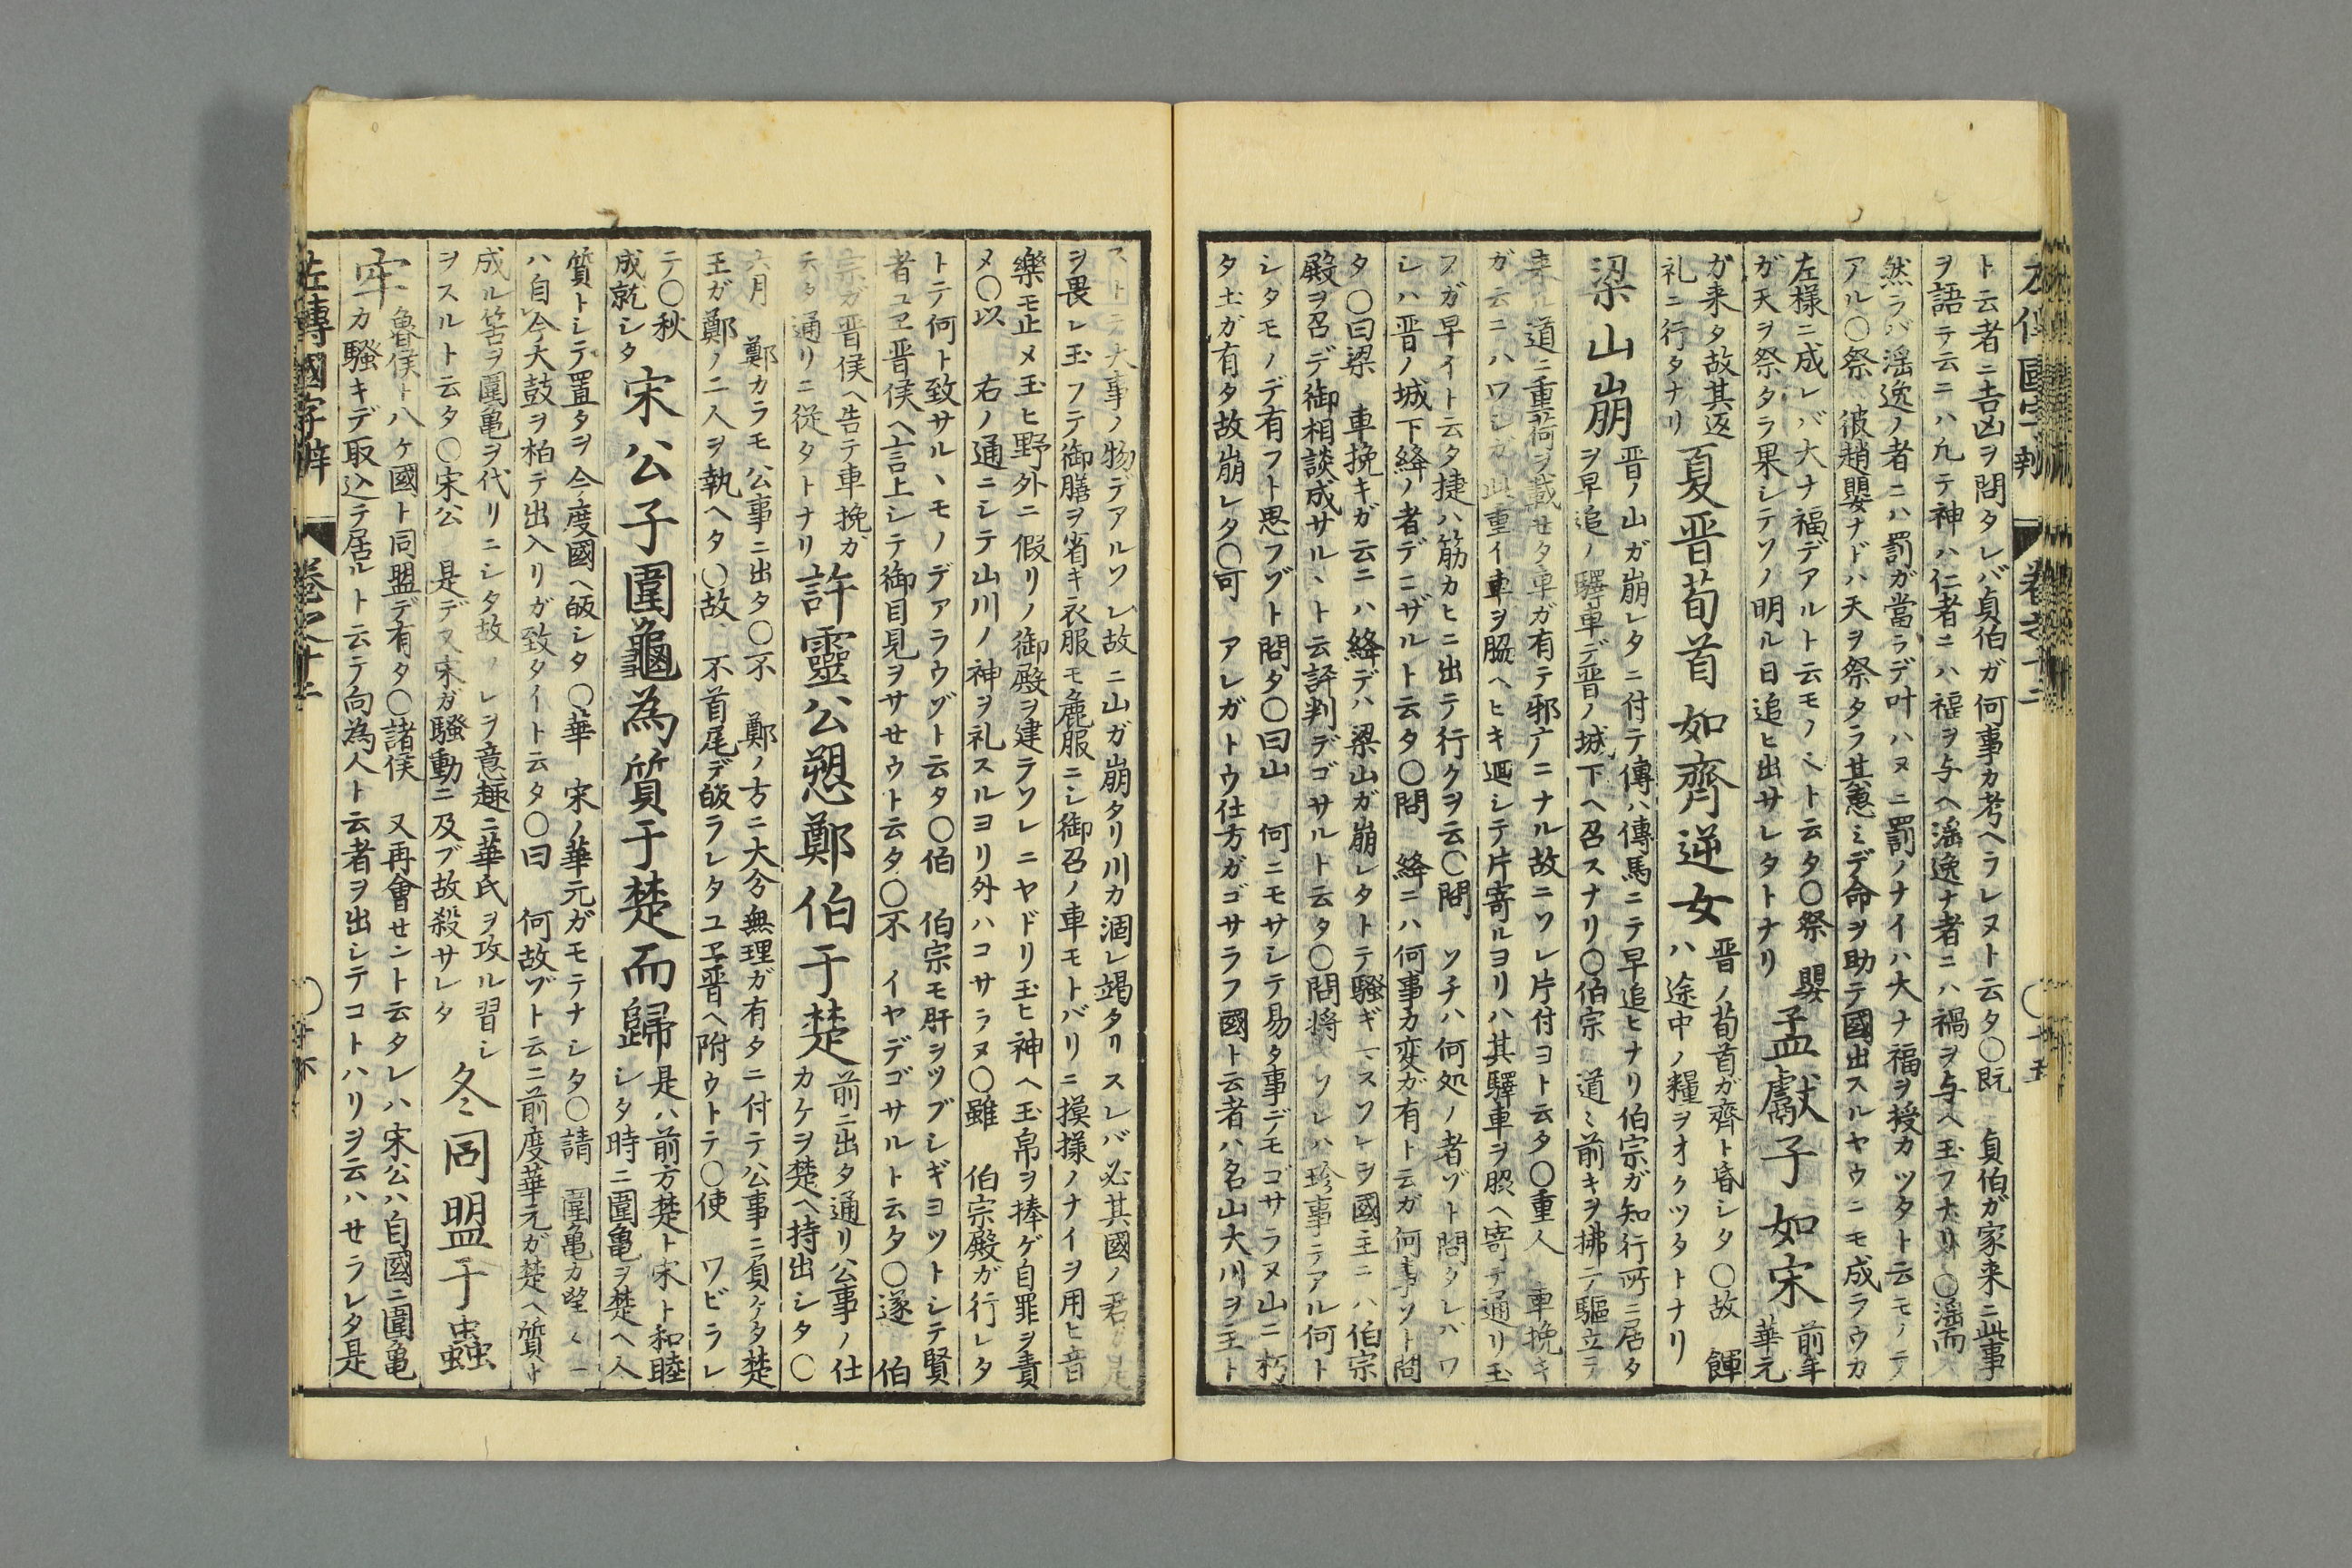 ト云者ニ吉凶ヲ問タレバ貞伯ガ何事カ考ヘラレヌト云タ〇既 貞伯ガ家来ニ此事
ヲ語テ云ニハ凡テ神ハ仁者ニハ福ヲ与ヘ滛逸ナ者ニハ禍ヲ与ヘ玉フナリ〇滛而
然ラバ滛逸ノ者ニハ罰ガ當ラデ叶ハヌニ罰ノナイハ大ナ福ヲ授カツタト云モノテ
アル〇祭 彼趙嬰ナドハ天ヲ祭タラ其惠ミデ命ヲ助テ國出スルヤウニモ成ラウカ
左様ニ成レバ大ナ福デアルト云モノヽト云タ〇祭 嬰
ガ天ヲ祭タラ果シテソノ明ル日追ヒ出サレタトナリ
孟獻子如宋
前年華元
ガ来タ故其返
礼ニ行タナリ
夏晋荀首如齊逆女
晋ノ荀首ガ齊ト昏シタ〇故 餫
ハ途中ノ糧ヲオクツタトナリ
梁山崩
晋ノ山ガ崩レタニ付テ傳ハ傳馬ニテ早追ヒナリ伯宗ガ知行所ニ居タ
ヲ早追ノ驛車デ晋ノ城下ヘ召スナリ〇伯宗 道ミ前キヲ拂テ驅立テ
来ル道ニ重荷ヲ載セタ車ガ有テ邪广ニナル故ニソレ片付ヨト云タ〇重人 車挽キ
ガ云ニハワシガ此重イ車ヲ脇ヘヒキ廻シテ片寄ルヨリハ其驛車ヲ脇ヘ寄テ通リ玉
フガ早イト云タ捷ハ筋カヒニ出テ行クヲ云〇問 ソチハ何処ノ者ゾト問タレバワ
シハ晋ノ城下絳ノ者デコザルト云タ〇問 絳ニハ何事カ変ガ有ト云ガ何事ソト問
タ〇曰梁 車挽キガ云ニハ絳デハ梁山ガ崩レタトテ騒ギマスソレヲ國主ニハ伯宗
殿ヲ召デ御相談成サルヽト云評判デゴサルト云タ〇問将 ソレハ珍事テアル何ト
シタモノデ有フト思フゾト問タ〇曰山 何ニモサシテ易タ事デモゴサラヌ山ニ朽
タ土ガ有タ故崩レタ〇可 アレガトウ仕方ガゴサラフ國ト云者ハ名山大川ヲ主ト
ストニ大事ノ物デアルソレ故ニ山ガ崩タリ川カ涸レ竭タリスレバ必其國ノ君ガ是
ヲ畏レ玉フテ御膳ヲ省キ衣服モ麁服ニシ御召ノ車モトバリニ摸様ノナイヲ用ヒ音
樂モ止メ玉ヒ野外ニ假リノ御殿ヲ建ラソレニヤドリ玉ヒ神ヘ玉帛ヲ捧ゲ自罪ヲ責
メ〇以 右ノ通ニシテ山川ノ神ヲ礼スルヨリ外ハコサラヌ〇雖 伯宗殿ガ行レタ
トテ何ト致サルヽモノデアラウゾト云タ〇伯 伯宗モ肝ヲツブシギヨツトシテ賢
者ユヱ晋侯ヘ言上シテ御目見ヲサセウト云タ〇不 イヤデゴサルト云タ〇遂 伯
宗ガ晋侯ヘ告テ車挽ガ
テタ通リニ従タトナリ
許靈公愬鄭伯于楚
前ニ出タ通リ公事ノ仕
カケヲ楚ヘ持出シタ〇
六月 鄭カラモ公事ニ出タ〇不 鄭ノ方ニ大分無理ガ有タニ付テ公事ニ負ケタ楚
王ガ鄭ノ二人ヲ執ヘタ〇故 不首尾デ皈ラレタユヱ晋ヘ附ウトテ〇使 ワビラレ
テ〇秋
成就シタ
宋公子圍龜為質于楚而歸
是ハ前方楚ト宋ト和睦
シタ時ニ圍亀ヲ楚ヘ人
質トシテ置タヲ今度國ヘ皈シタ〇華 宋ノ華元ガモテナシタ〇請 圍亀カ望ミニ
ハ自今大鼓ヲ柏テ出入リガ致タイト云タ〇曰 何故ゾト云ニ前度華元ガ楚ヘ質ト
成ル筈ヲ圍亀ヲ代リニシタ故ソレヲ意趣ニ華氏ヲ攻ル習シ
ヲスルト云タ〇宋公 是デマ宋ガ騒動ニ及ブ故殺サレタ
冬同盟于蟲
牢
魯侯ト八ケ國ト同盟デ有タ〇諸侯 又再會セント云タレハ宋公ハ自國ニ圍亀
カ騒キデ取込テ居ルト云テ向為人ト云者ヲ出シテコトハリヲ云ハセラレタ是
左傳國字辨 巻之十二